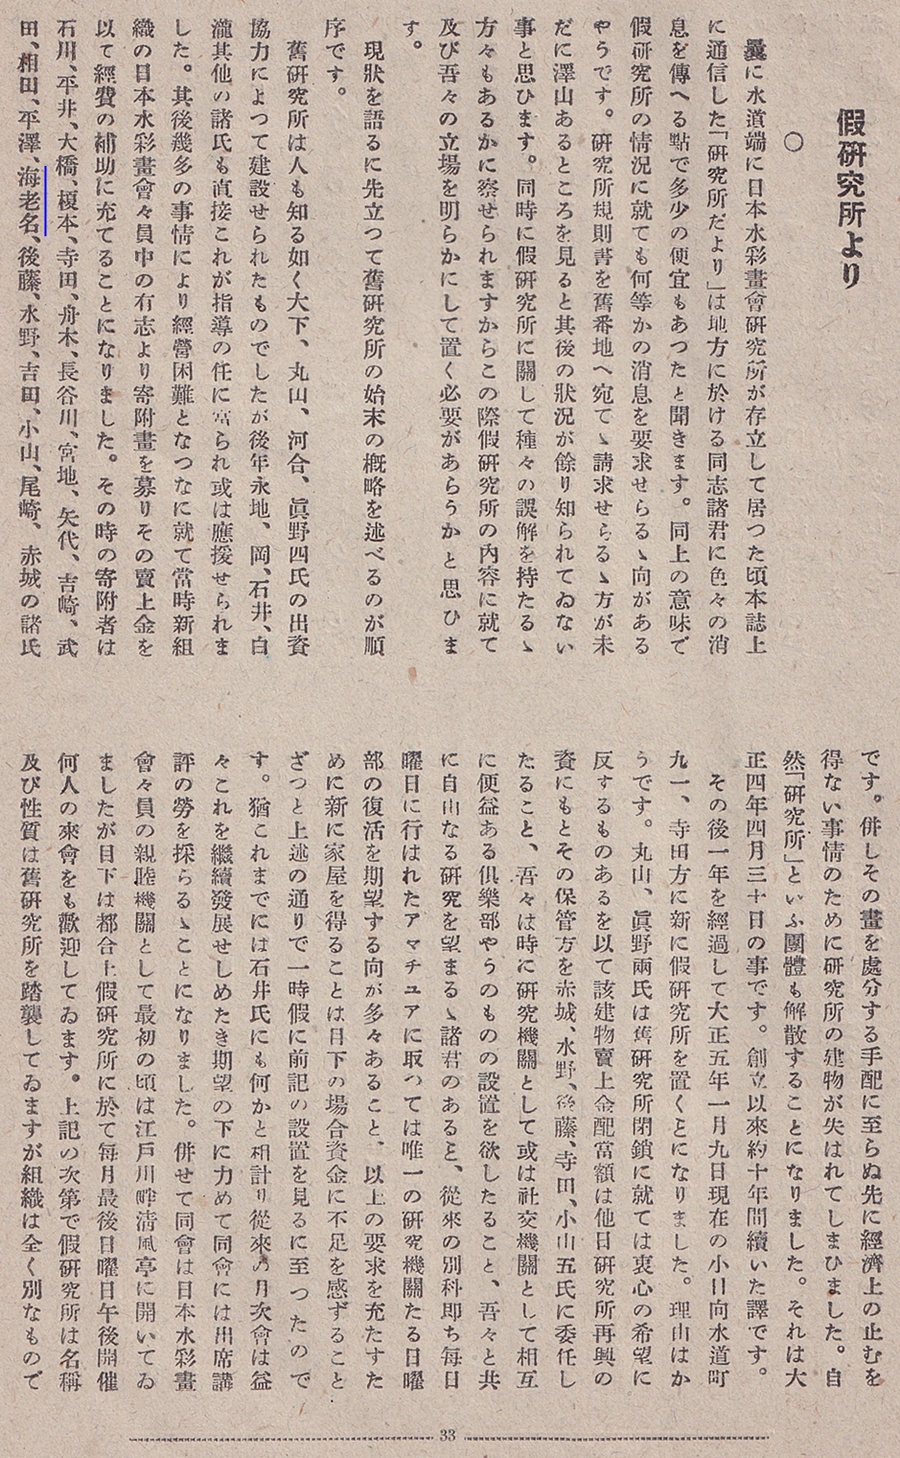 假研究所より
〇
曩に水道端に日本水彩畫會研究所が存立して居つた頃本誌上
に通信した「研究所だより」は地方に於ける同志諸君に色々の消
息を傳へる點で多少の便宜もあつたと聞きます。同上の意味で
假研究所の情況に就ても何等かの消息を要求せらるゝ向がある
やうです。研究所規則書を舊番地へ宛てゝ請求せらるゝ方が未
だに澤山あるところを見ると其後の狀況が餘り知られてゐない
事と思ひます。同時に假研究所に關して種々の誤解を持たるゝ
方々もあるかに察せられますからこの際假研究所の內容に就て
及び吾々の立場を明らかにして置く必要があらうかと思ひま
す。
現狀を語るに先立つて舊研究所の始末の概略を述べるのが順
序です。
舊研究所は人も知る如く大下、丸山、河合、眞野四氏の出資
協力によつて建設せられたものでしたが後年永地、岡、石井、白
瀧其他の諸氏も直接これが指導の任に當られ或は應援せられま
した。其後幾多の事情により經營困難となつなに就て當時新組
織の日本水彩畫會々員中の有志より寄附畫を募りその賣上金を
以て經費の補助に充てることになりました。その時の寄附者は
石川、平井、大橋、榎本、寺田、舟木、長谷川、宮地、矢代、吉崎、武
田、相田、平澤、海老名、後藤、水野、吉田、小山、尾崎、赤城の諸氏
です。併しその畫を處分する手配に至らぬ先に經濟上の止むを
得ない事情のために研究所の建物が失はれてしまひました。自
然「研究所」といふ團體も解散することになりました。それは大
正四年四月三十日の事です。創立以來約十年間續いた譯です。
その後一年を經過して大正五年一月九日現在の小日向水道町
九一、寺田方に新に假研究所を置くとになりました。理山はか
うです。丸山、眞野兩氏は舊研究所閉鎖に就ては衷心の希望に
反するものあるを以て該建物賣上金配富額は他日研究所再興の
資にもとその保管方を赤城、水野、後藤、寺田、小山五氏に委任し
たること、吾々は時に研究機關として或は社交機關として相互
に便益ある俱樂部やうのものの設置を欲したること、吾々と共
に自由なる研究を望まるゝ諸君のあると、從來の別科即ち每日
曜日に行はれたアマチユアに取つては唯一の研究機關たる日曜
部の復活を期望する向が多々あること、以上の要求を充たすた
めに新に家屋を得ることは目下の場合資金に不足を感ずること
ざつと上述の通りで一時假に前記の設置を見るに至つたので
す。猶これまでには石井氏にも何かと相計り從來の月次會は益
々これを繼續發展せしめたき期望の下に力めて同會には出席講
評の勞を採らるゝことになりました。併せて同會は日本水彩畫
會々員の親睦機關として最初の頃は江戸川畔淸風亭に開いてゐ
ましたが目下は都合上假研究所に於て每月最後日曜日午後開催
何人の來會をも歡迎してゐます。上記の次第で假研究所は名稱
及び性質は舊研究所を踏襲してゐますが組織は全く別なもので
33